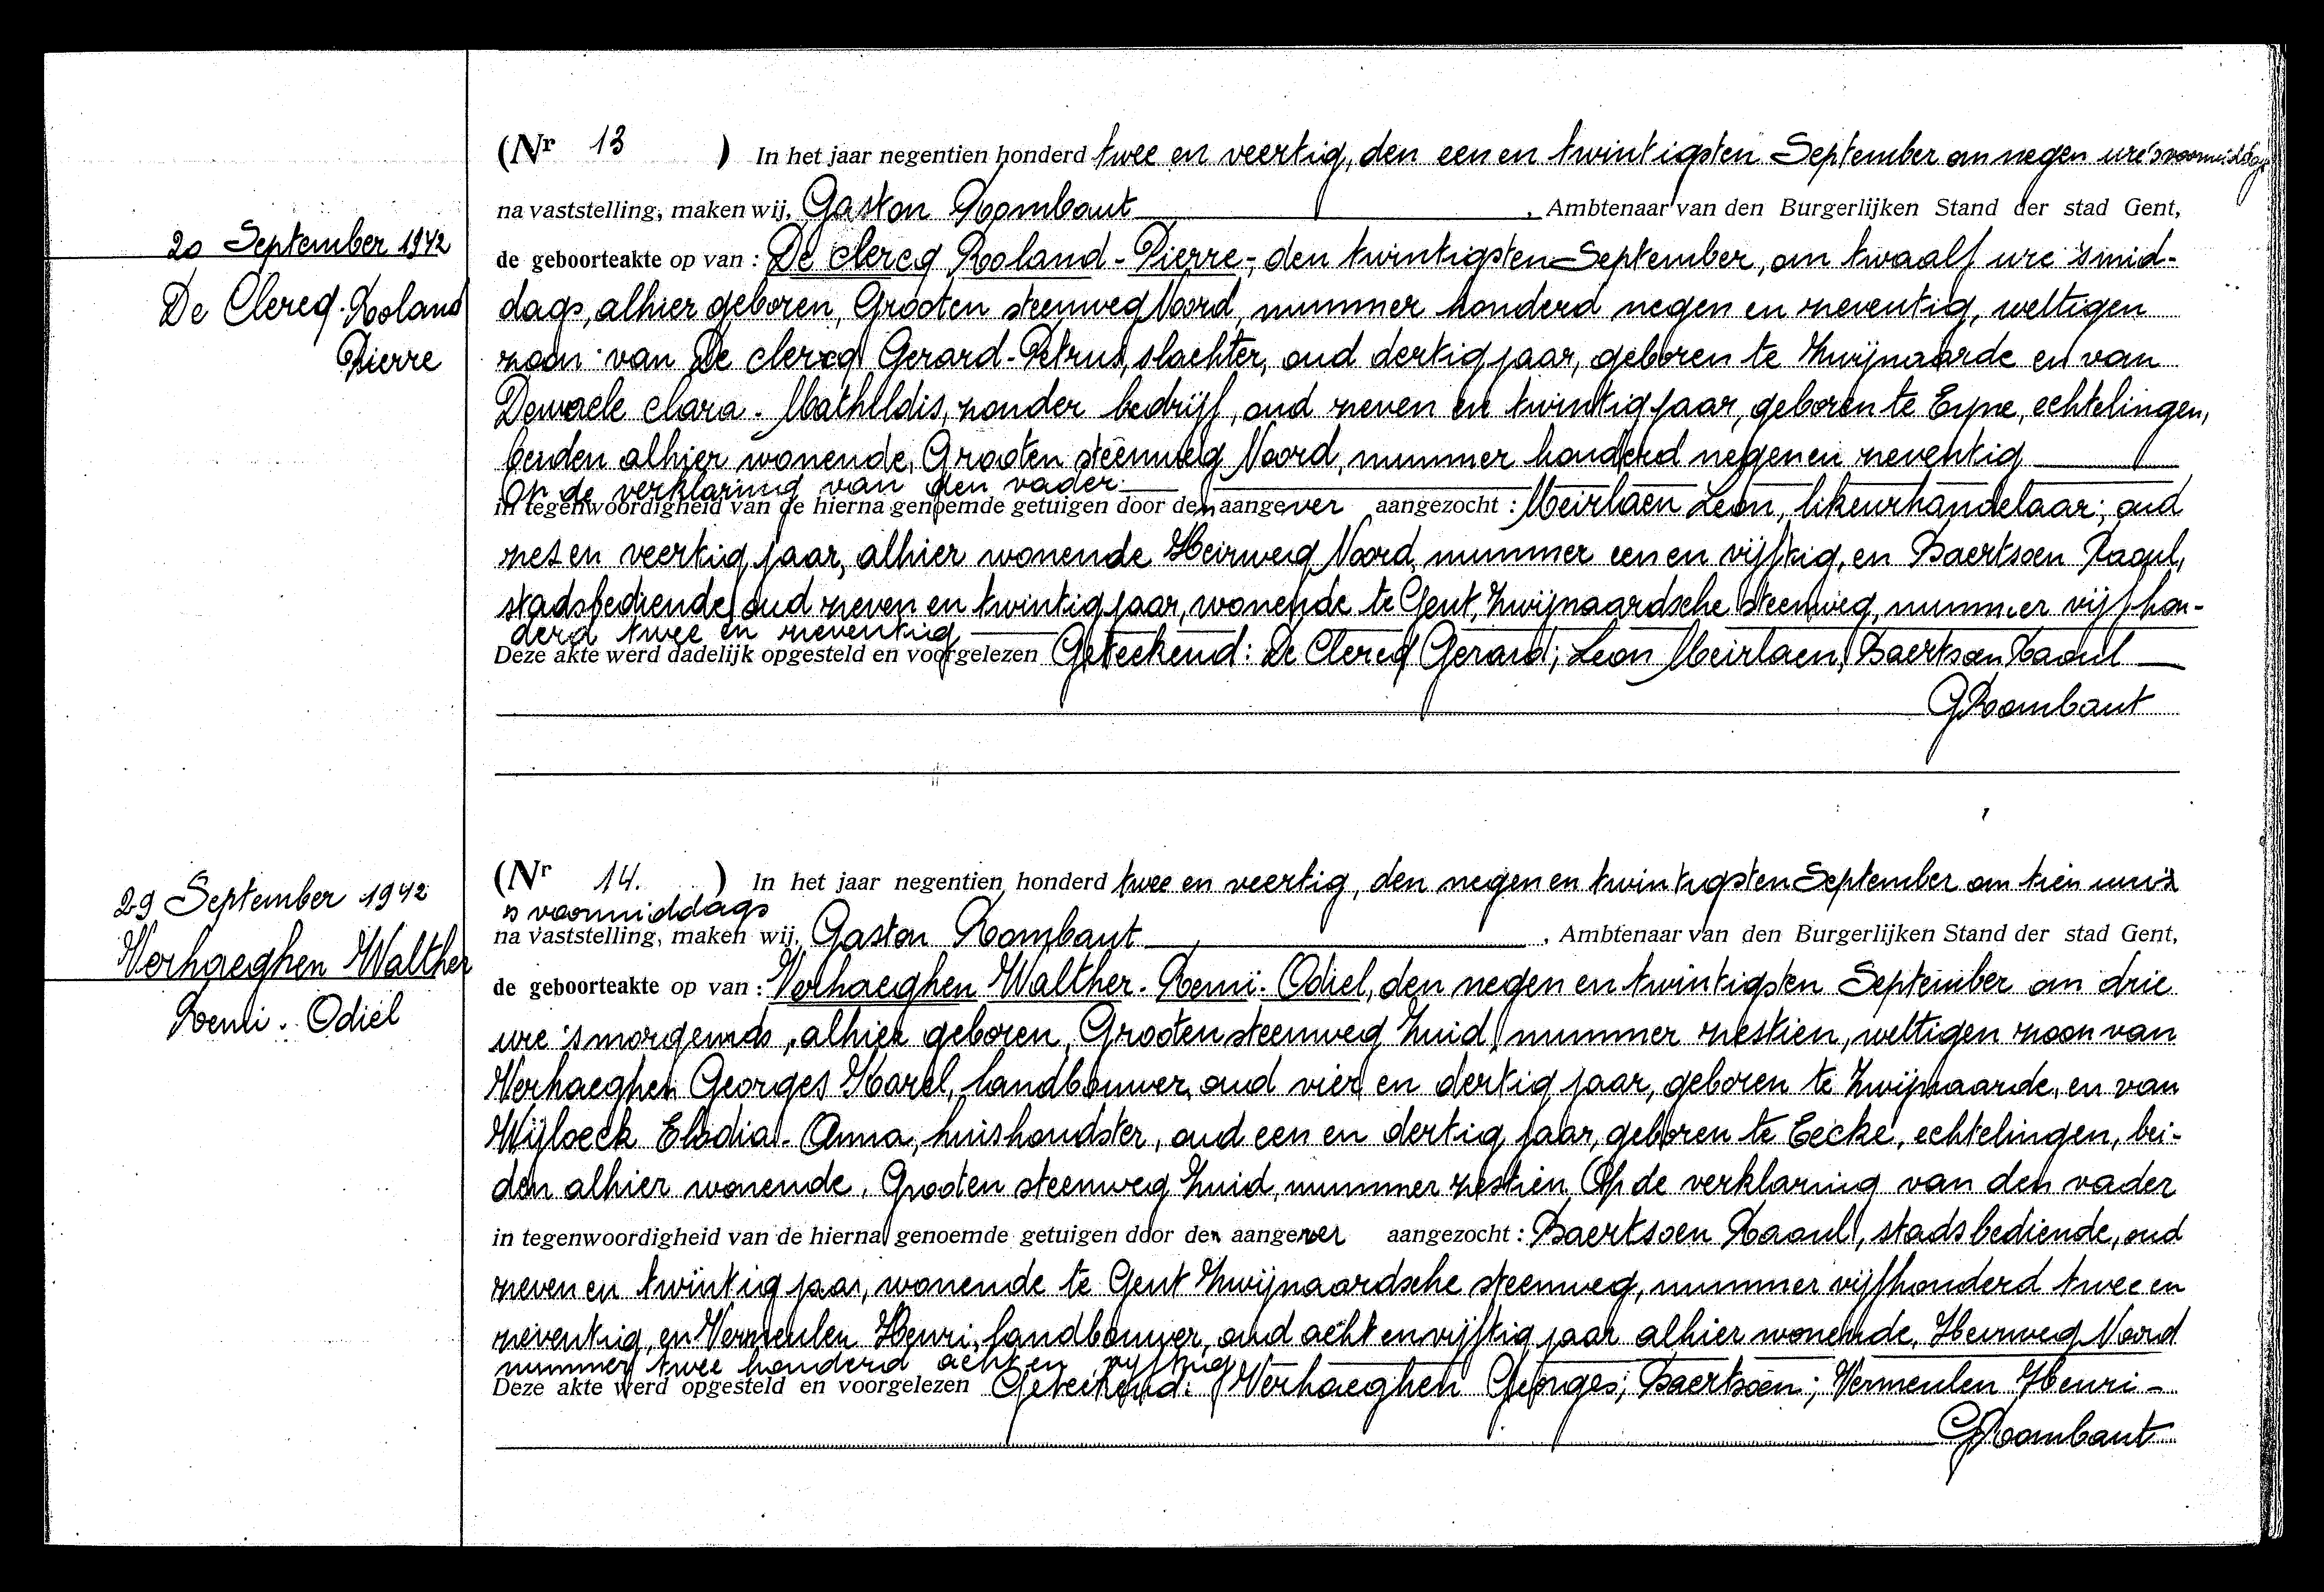 20 September 1942
De Clercq Roland
Pierre
(Nr 13 ) In het jaar negentien honderd twee en veertig, den een en twintigsten September om negen ure 's voormiddags
na vaststelling, maken wij, Gaston Rombaut, Ambtenaar van den Burgerlijken Stand der stad Gent,
de geboorteakte op van : De clercq Roland - Pierre -, den twintigsten September, om twaalf ure 's mid-
dags, alhier geboren, Grooten steenweg Noord, nummer honderd negen en zeventig, wettigen
zoon van De clercq Gerard - Petrus, slachter, oud dertig jaar, geboren te Zwijnaarde en van
Dewaele clara - Mathildis, zonder bedrijf, oud zeven en twintig jaar, geboren te Eyne, echtelingen,
beiden alhier wonende, Grooten steenweg Noord, nummer honderd negen en zeventig
Op de verklaring van den vader
in tegenwoordigheid van de hierna genoemde getuigen door den aangever aangezocht : Meirlaen Leon, likeurhandelaar, oud
zes en veertig jaar, alhier wonende Heirweg Noord, nummer een en vijftig, en Baertsoen Raoul,
stadsbediende, oud zeven en twintig jaar, wonende te Gent, Zwijnaardsche steenweg, nummer vijf hon-
derd twee en zeventig
Deze akte werd dadelijk opgesteld en voorgelezen Geteekend : De Clercq Gerard ; Leon Meirlaen, Baertsoen Raoul
G Rombaut
29 September 1942
Verhaeghen Walther
Remi - Odiel
(Nr 14. ) In het jaar negentien honderd twee en veertig, den negen en twintigsten September om tien ure
's voormiddags
na vaststelling, maken wij, Gaston Rombaut, Ambtenaar van den Burgerlijken Stand der stad Gent,
de geboorteakte op van : Verhaeghen Walther - Remi - Odiel, den negen en twintigsten September om drie
ure 's morgends, alhier geboren, Grooten steenweg Zuid, nummer zestien, wettigen zoon van
Verhaeghen Georges Karel, landbouwer, oud vier en dertig jaar, geboren te Zwijnaarde, en van
Wijloeck Elodia - Anna, huishoudster, oud een en dertig jaar, geboren te Eecke, echtelingen, bei-
den alhier wonende, Grooten steenweg Zuid, nummer zestien, Op de verklaring van den vader
in tegenwoordigheid van de hierna genoemde getuigen door den aangever aangezocht : Baertsoen Raoul, stadsbediende, oud
zeven en twintig jaar, wonende te Gent Zwijnaardsche steenweg, nummer vijfhonderd twee en
zeventig, en Vermeulen Henri, landbouwer, oud acht en vijftig jaar alhier wonende, Heirweg Noord
nummer twee honderd acht en vijftig
Deze akte werd opgesteld en voorgelezen Geteekend : Verhaeghen Georges ; Baertsoen ; Vermeulen Henri -
G Rombaut